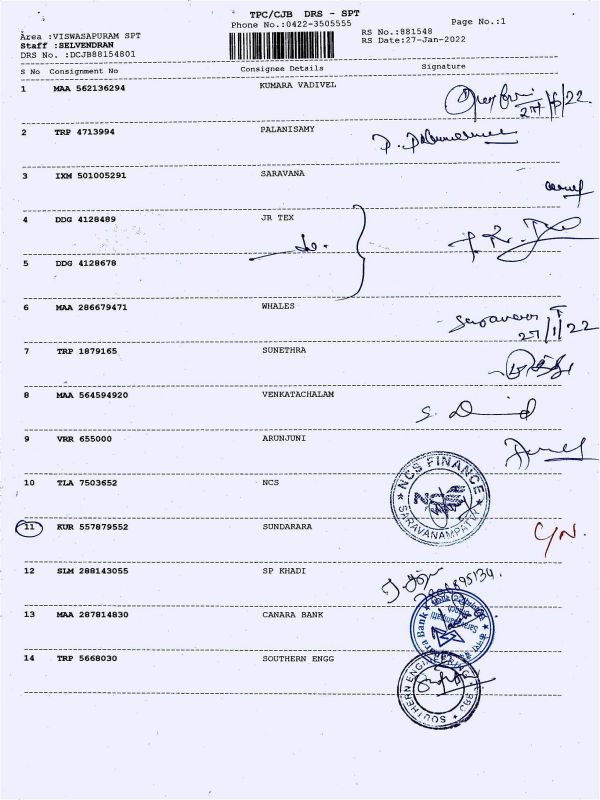 TPC/CJB DRS - SPT
Phone No.:0422-3505555
Page No.:1
Area :VISWASAPURAM SPT
RS No.:881548
Staff :SELVENDRAN
RS Date:27-Jan-2022
DRS No. :DCJB88154801
S No Consignment No Consignee Details Signature
1 MAA 562136294 KUMARA VADIVEL
2 TRP 4713994 PALANISAMY
3 IXM 501005291 SARAVANA
4 DDG 4128489 JR TEX
5 DDG 4128678
6 MAA 286679471 WHALES
27/1/22
7 TRP 1879165 SUNETHRA
8 MAA 564594920 VENKATACHALAM
9 VRR 655000 ARUNJUNI
10 TLA 7503652 NCS
NCS FINANCE
SARAVANAMPATTI
11 KUR 557879552 SUNDARARA
C/N.
12 SLM 288143055 SP KHADI
13 MAA 287814830 CANARA BANK
14 TRP 5668030 SOUTHERN ENGG
SOUTHERN ENGINEERING CBE